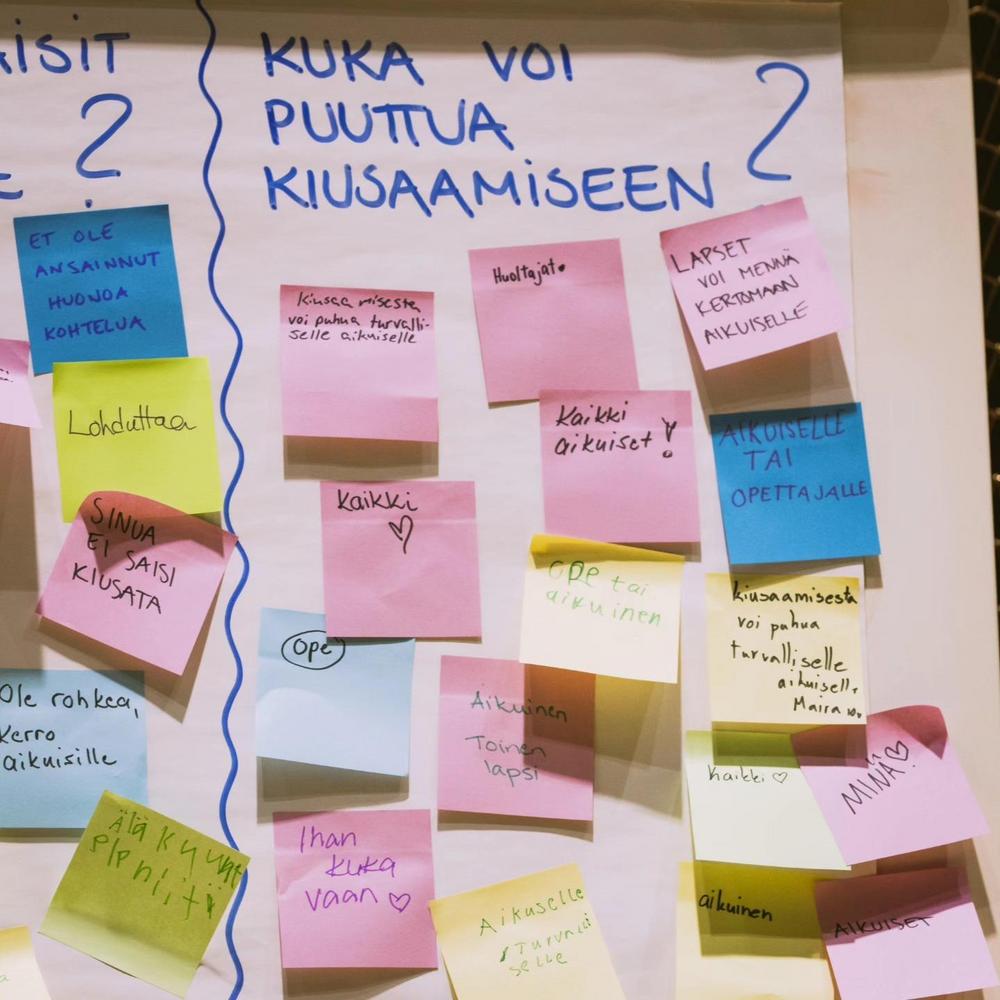 AISIT
?
ET OLE
ANSAINNUT
HUONOA
KOHTELUA
Lohduttaa
SINUA
EI SAISI
KIUSATA
Ole rohkea,
Kerro
aikuisille
Älä kuunt
ele niitä
KUKA VOI
PUUTTUA
KIUSAAMISEEN ?
Kiusaamisesta
voi puhua turvalli-
selle aikuiselle
Huoltajat.
LAPSET
VOI MENNÄ
KERTOMAAN
AIKUISELLE
Kaikki
aikuiset!
AIKUISELLE
TAI
OPETTAJALLE
Kaikki
♡
OPE tai
aikuinen
kiusaamisesta
voi puhua
turvalliselle
aikuiselle
Maira 10.
Ope
Aikuinen
Toinen
lapsi
Kaikki ♡
MINÄ♡
Ihan
kuka
vaan ♡
Aikuselle
Turvali
selle
aikuinen
AIKUISET